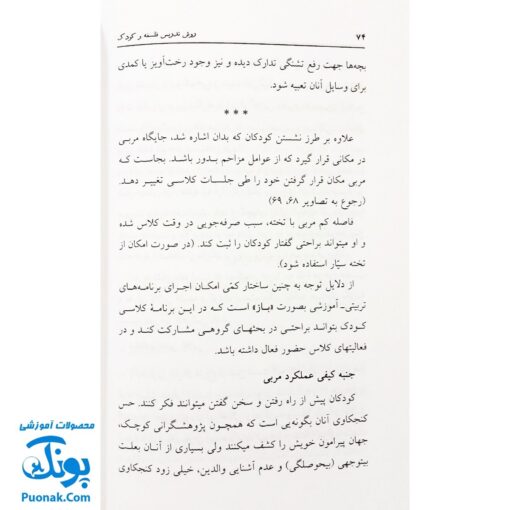 ۷۴ روش تدریس فلسفه و کودک
بچه‌ها جهت رفع تشنگی تدارک دیده و نیز وجود رخت‌آویز یا کمدی
برای وسایل آنان تعبیه شود.
***
علاوه بر طرز نشستن کودکان که بدان اشاره شد، جایگاه مربی
در مکانی قرار گیرد که از عوامل مزاحم بدور باشد. بجاست که
مربی مکان قرار گرفتن خود را طی جلسات کلاسی تغییر دهد.
(رجوع به تصاویر ۶۸، ۶۹)
فاصله کم مربی با تخته، سبب صرفه‌جویی در وقت کلاس شده
و او میتواند براحتی گفتار کودکان را ثبت کند. (در صورت امکان از
تخته سیّار استفاده شود).
از دلایل توجه به چنین ساختار کمّی امکان اجرای برنامه‌های
تربیتی‌ـ آموزشی بصورت «باز» است که در این برنامهٔ کلاسی
کودک بتواند براحتی در بحثهای گروهی مشارکت کند و در
فعالیتهای کلاس حضور فعال داشته باشد.
جنبه کیفی عملکرد مربی
کودکان پیش از راه رفتن و سخن گفتن میتوانند فکر کنند. حس
کنجکاوی آنان بگونه‌یی است که همچون پژوهشگرانی کوچک،
جهان پیرامون خویش را کشف میکنند ولی بسیاری از آنان بعلت
بیتوجهی (بیحوصلگی) و عدم آشنایی والدین، خیلی زود کنجکاوی
محصولات آموزشی
پونک
Puonak.Com